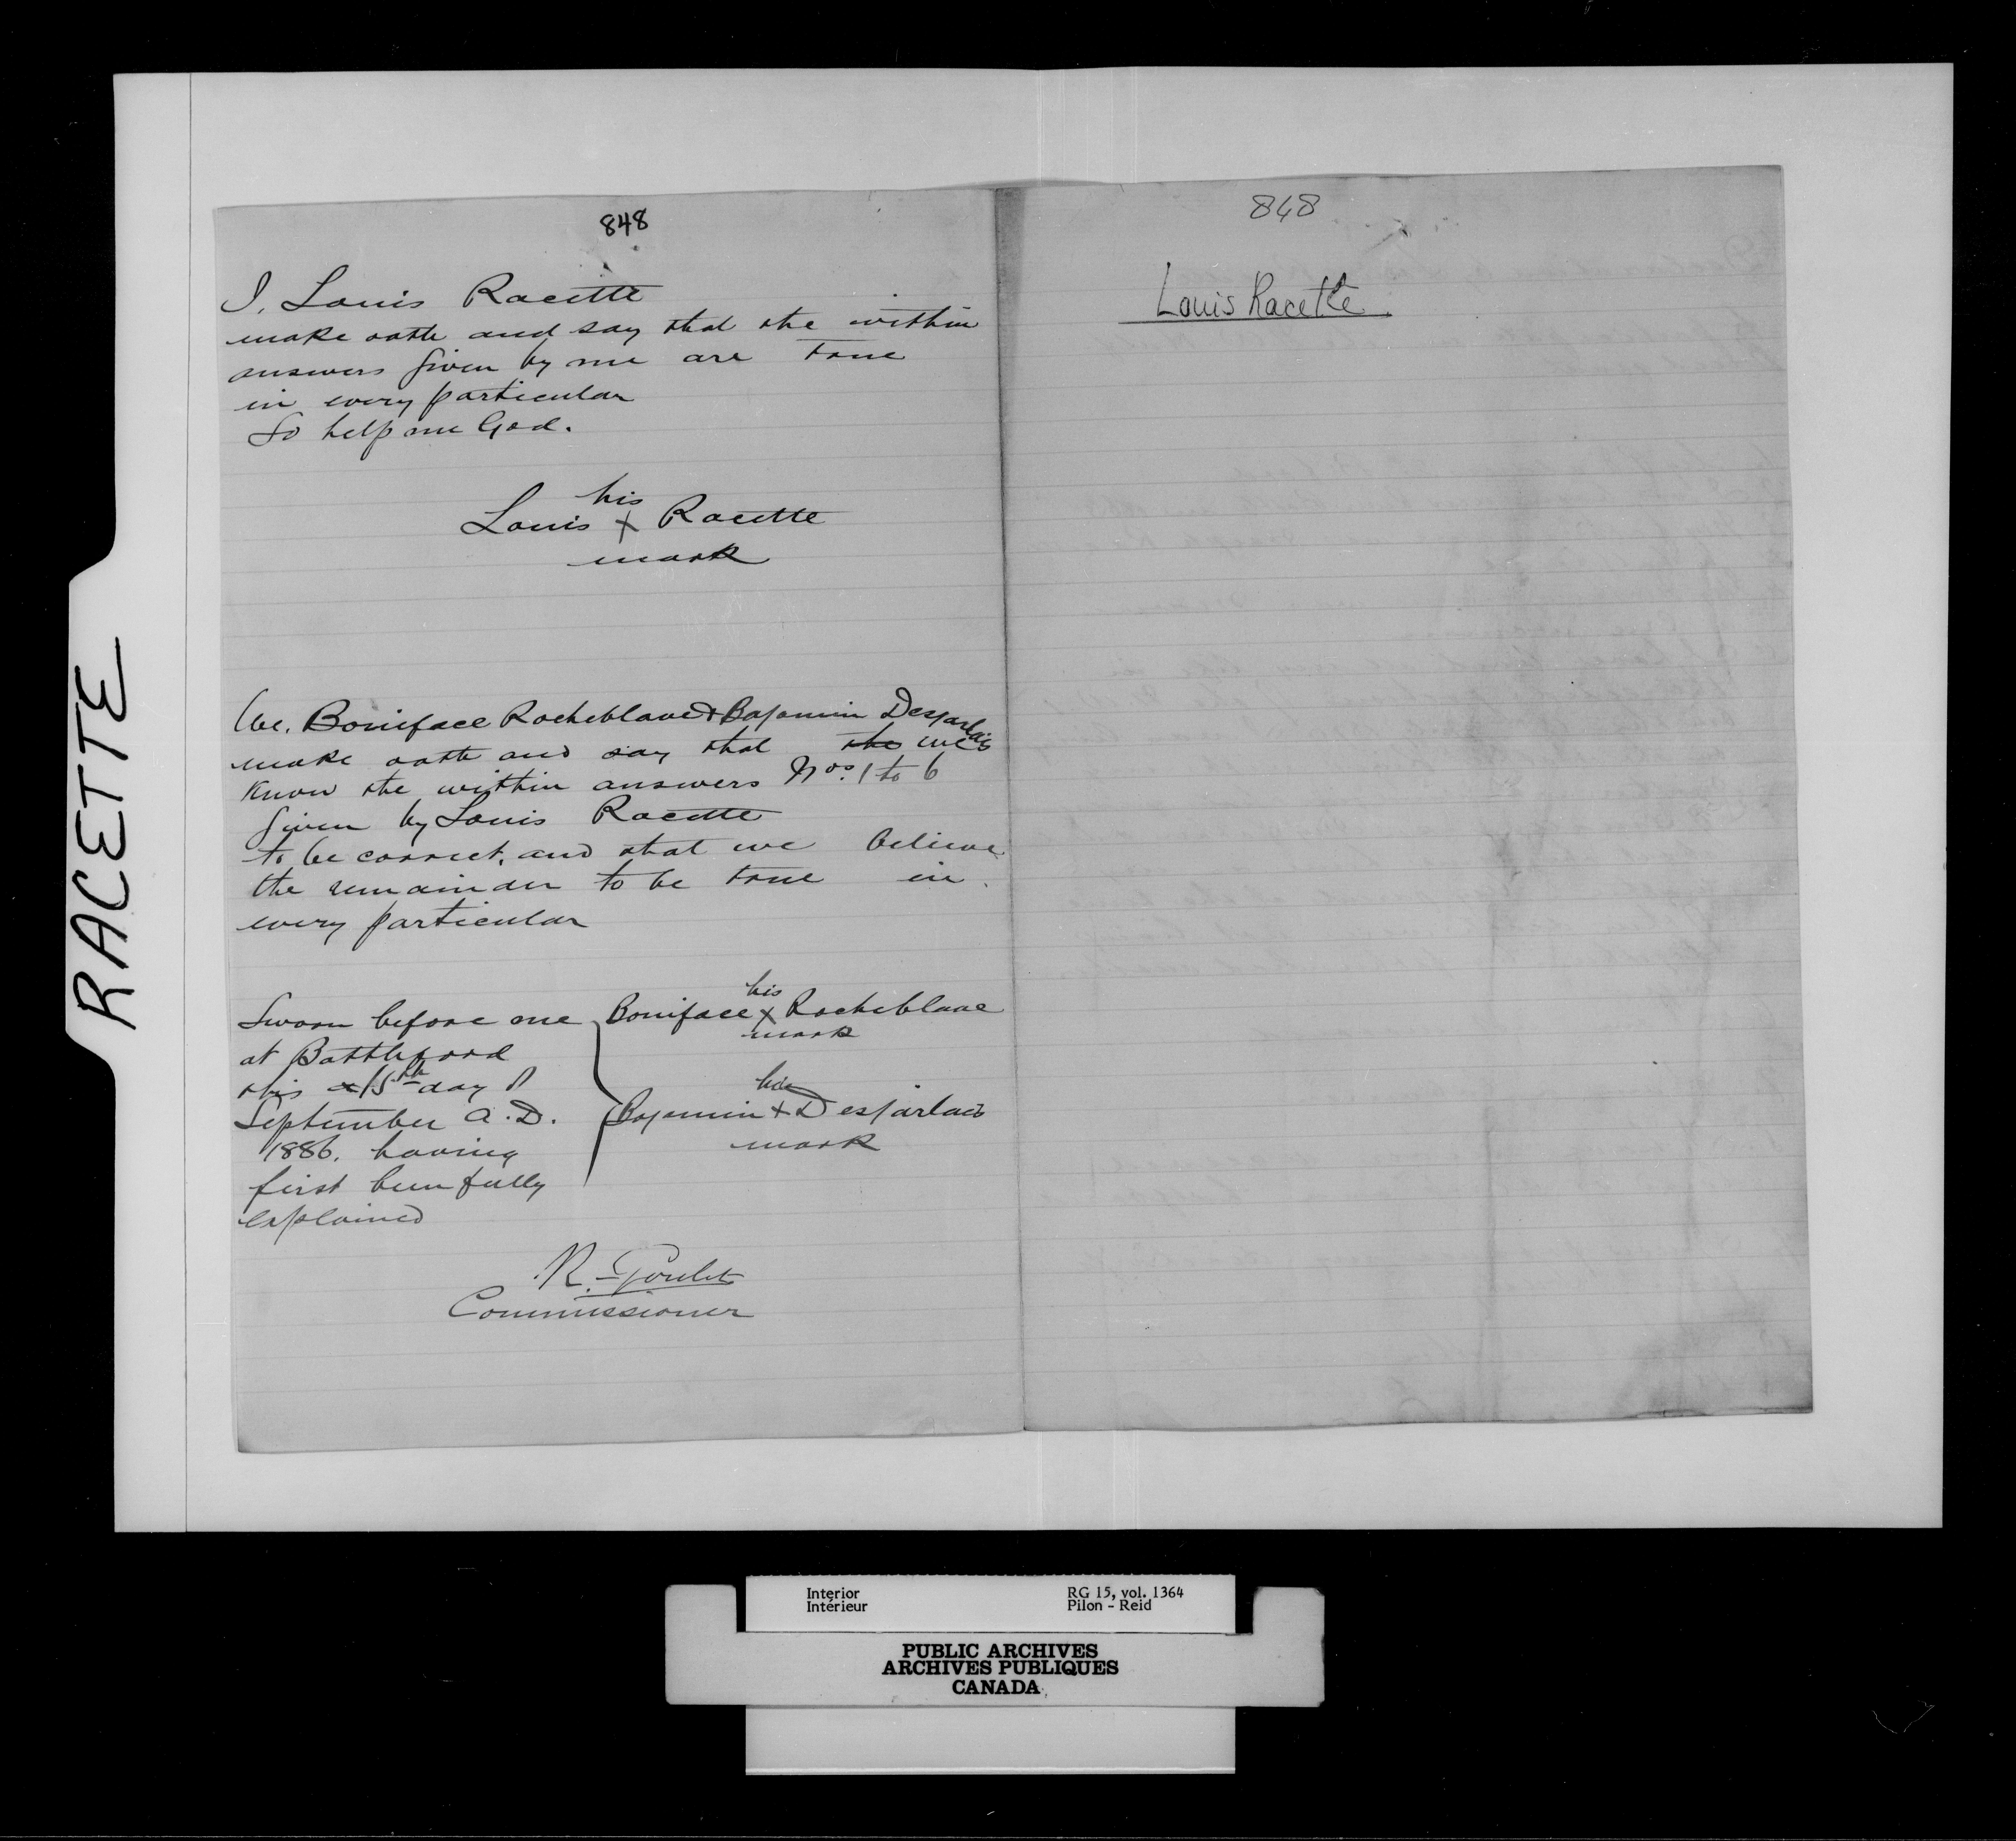 848
I, Louis Racette
make oath and say that the within
answers given by me are true
in every particular
So help me God.
his
Louis x Racette
mark
We, Boniface Rocheblave & Bajamin Desjarlais
make oath and say that the we
Know the within answers Nos. 1 to 6
given by Louis Racette
to be correct, and that we believe
the remainder to be true in
every particular
Sworn before me
at Battleford
this 15th day of
September A.D.
1886. having
first been fully
explained
his
Boniface x Rocheblave
mark
his
Bajamin + Desjarlais
mark
R. Goulet
Commissioner
848
Louis Racette
RACETTE
Interior
Intérieur
RG 15, vol. 1364
Pilon - Reid
PUBLIC ARCHIVES
ARCHIVES PUBLIQUES
CANADA